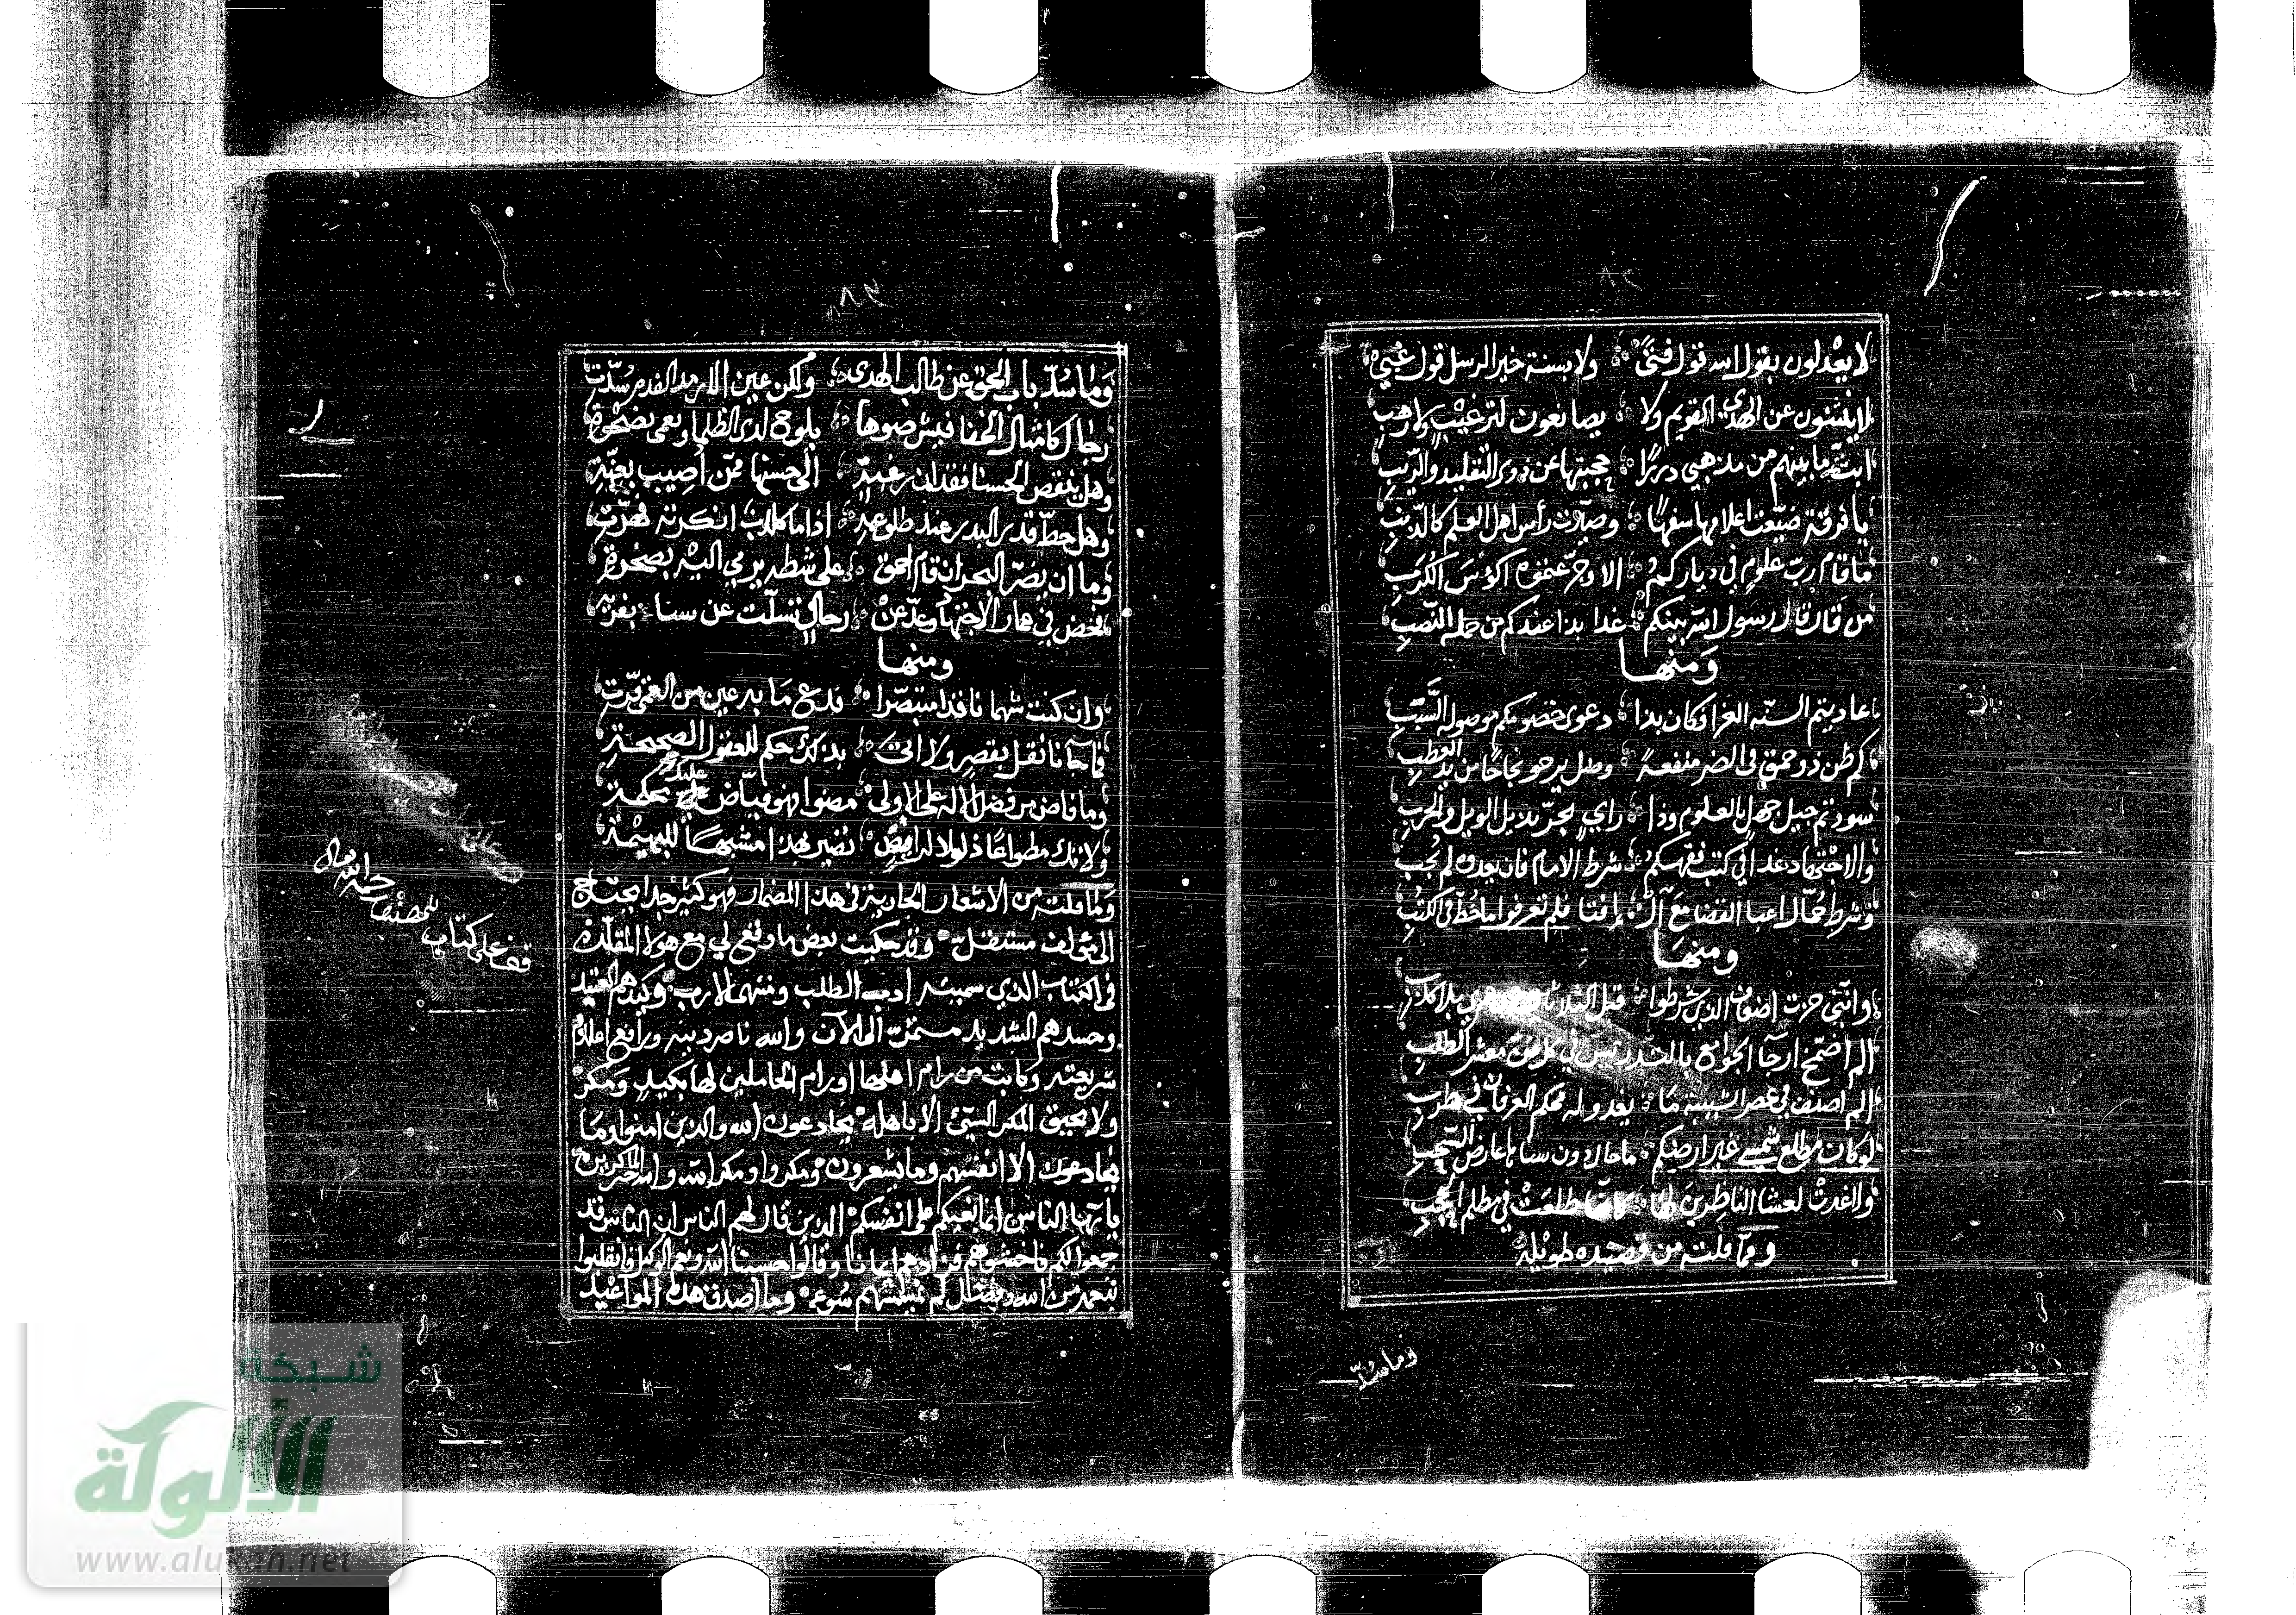 لا يعدلون بقول الله قول فتى ولا بسنة خير الرسل قول غبي
لا ينثنون عن الهدي القويم ولا يصانعون لترغيب ولا رهب
ابث ما بينهم من مذهبي دررا حجبتها عن ذوي التقليد والريب
يا فرقة ضيعت اعلامها سفها وصيرت رأس اهل العلم كالذنب
ما قام رب علوم في دياركم الا وجرعتموه اكؤس الكرب
من قال قال رسول الله بينكم غدا بذا عندكم من حمله النصب
ومنها
عاديتم السنة الغرا وكان بذا دعوى خصومكم موصولة السبب
كم ظن ذو حمق في الضر منفعة وظل يرجو نجاحا من يد العطب
سودتم جيل جهل بالعلوم وذا راي يجر بذيل الويل والحرب
والاجتهاد غدا في كتب فقهكم شرط الامام فان يعدوه لم يجب
وشرط حمال اعبا القضا مع الـ افتا فلم تعرفوا ما خط في الكتب
ومنها
وانني حزت اضعاف الذي شرطوا قبل الثلاثين
الم اضمخ ارجا الجوامع بالتدريس في معشر الطلب
الم اصنف في عصر الشبيبة ما يغدو له محكم العرفان في طرب
لو كان مطلع شمسي غير ارضكم ما حال دون سناها عارض السحب
والغدت لعشا الناظرين لها كانها طلعت في مظلم الحجب
ومما قلته من قصيدة طويلة
وما سد
٨٣
وما سد باب الحق عن طالب الهدى ولكن عين الارمد الفدم سدت
رجال كامثال الخفافيش ضوها يلوح لدى الظلما ويعمى بضحوة
وهل ينقص الحسنا فقدان رغبة الى حسنها ممن اصيب بعنة
وهل حط قدر البدر عند طلوعه اذا ما كلاب انكرته فهرت
وما ان يضر البحر ان قام احمق على شطه يرمي اليه بصخرة
فخض في بحار الاجتهاد وعد عن رجال تسلت عن سناه بفرية
ومنها
وان كنت شهما ناقدا متبصرا فدع ما به عين من العمي قرت
فما جآنا نقل بقصر ولا اتى بذلك حكم للعقول الصحيحة
وما فاض من فضل الاله على الاولى مضوا فهو فياض عليك بحكمة
ولا تك مطواعا ذلولا لرايض تصير بهذا مشبها للبهيمة
وما قلته من الاشعار الجارية في هذا المضمار فهو كثير جدا يحتاج
الى مؤلف مستقل وقد حكيت بعض ما وقع لي مع هولا المقلدة
في الكتاب الذي سميته ادب الطلب ومنتهى الارب وكيدهم العتيد
وحسدهم الشديد مستمر الى الآن والله ناصر دينه ورافع اعلام
شريعته وكابت من رام اهلها او رام الحاملين لها بكيد ومكر
ولا يحيق المكر السيئ الا باهله يخادعون الله والذين امنوا وما
يخادعون الا انفسهم وما يشعرون ومكروا ومكر الله والله خير الماكرين
يا آيها الناس انما بغيكم على انفسكم الذين قال لهم الناس ان الناس قد
جمعوا لكم فاخشوهم فزادهم ايمانا وقالوا حسبنا الله ونعم الوكيل فانقلبوا
بنعمة من الله وفضل لم يمسسهم سوء وما اصدق هذه المواعيد
قف على كتاب للمصنف رحمه الله
شبكة
الألولة
www.alukah.net